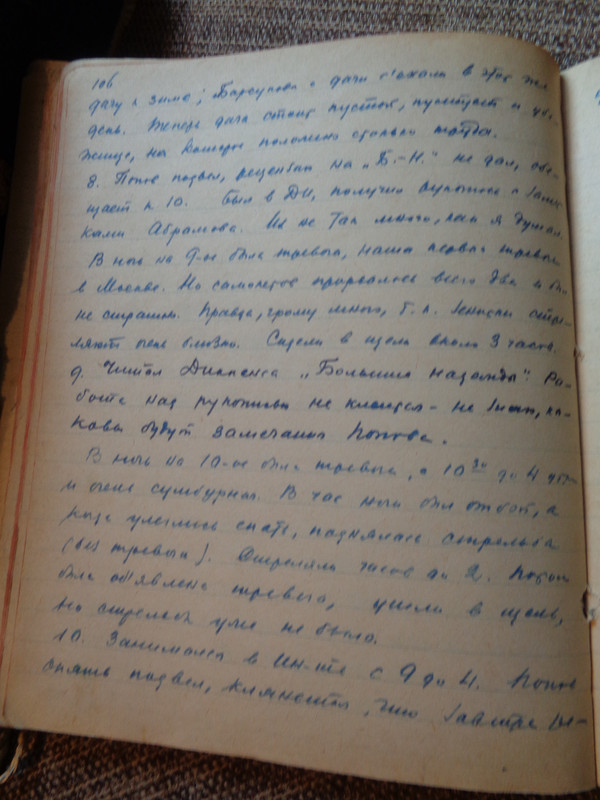 106
дачу к зиме; Барсукова с дачи с'ехали в этот же
день. Теперь дача стоит пустой, пустует и убе-
жище, на которое положено столько труда.
8. Попов подвел, рецензии на „Б.-Н." не дал, обе-
щает к 10. Был в ДИ, получил рукопись с замет-
ками Абрамова. Их не так много, как я думал.
В ночь на 9-ое была тревога, наша первая тревога
в Москве. Но самолетов прорвалось всего два и было
не страшно. Правда, грому много, т.к. зенитки стре-
ляют очень близко. Сидели в щели около 3 часов.
9. Читал Диккенса „Большие надежды". Ра-
бота над рукописью не клеится - не знаю, ка-
ковы будут замечания Попова.
В ночь на 10-ое была тревога, с 10 30 до 4 утра
и очень сумбурная. В час ночи был отбой, а
когда улеглись спать, поднялась стрельба
(без тревоги). Стреляли часов до 2. Потом
была объявлена тревога, ушли в щель,
но стрельбы уже не было.
10. Занимался в Ин-те с 9 до 4. Попов
опять подвел, клянется, что завтра